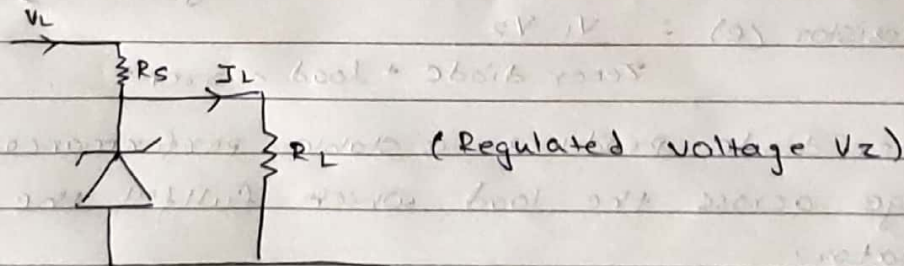 VL
RS IL
RL (Regulated voltage Vz)